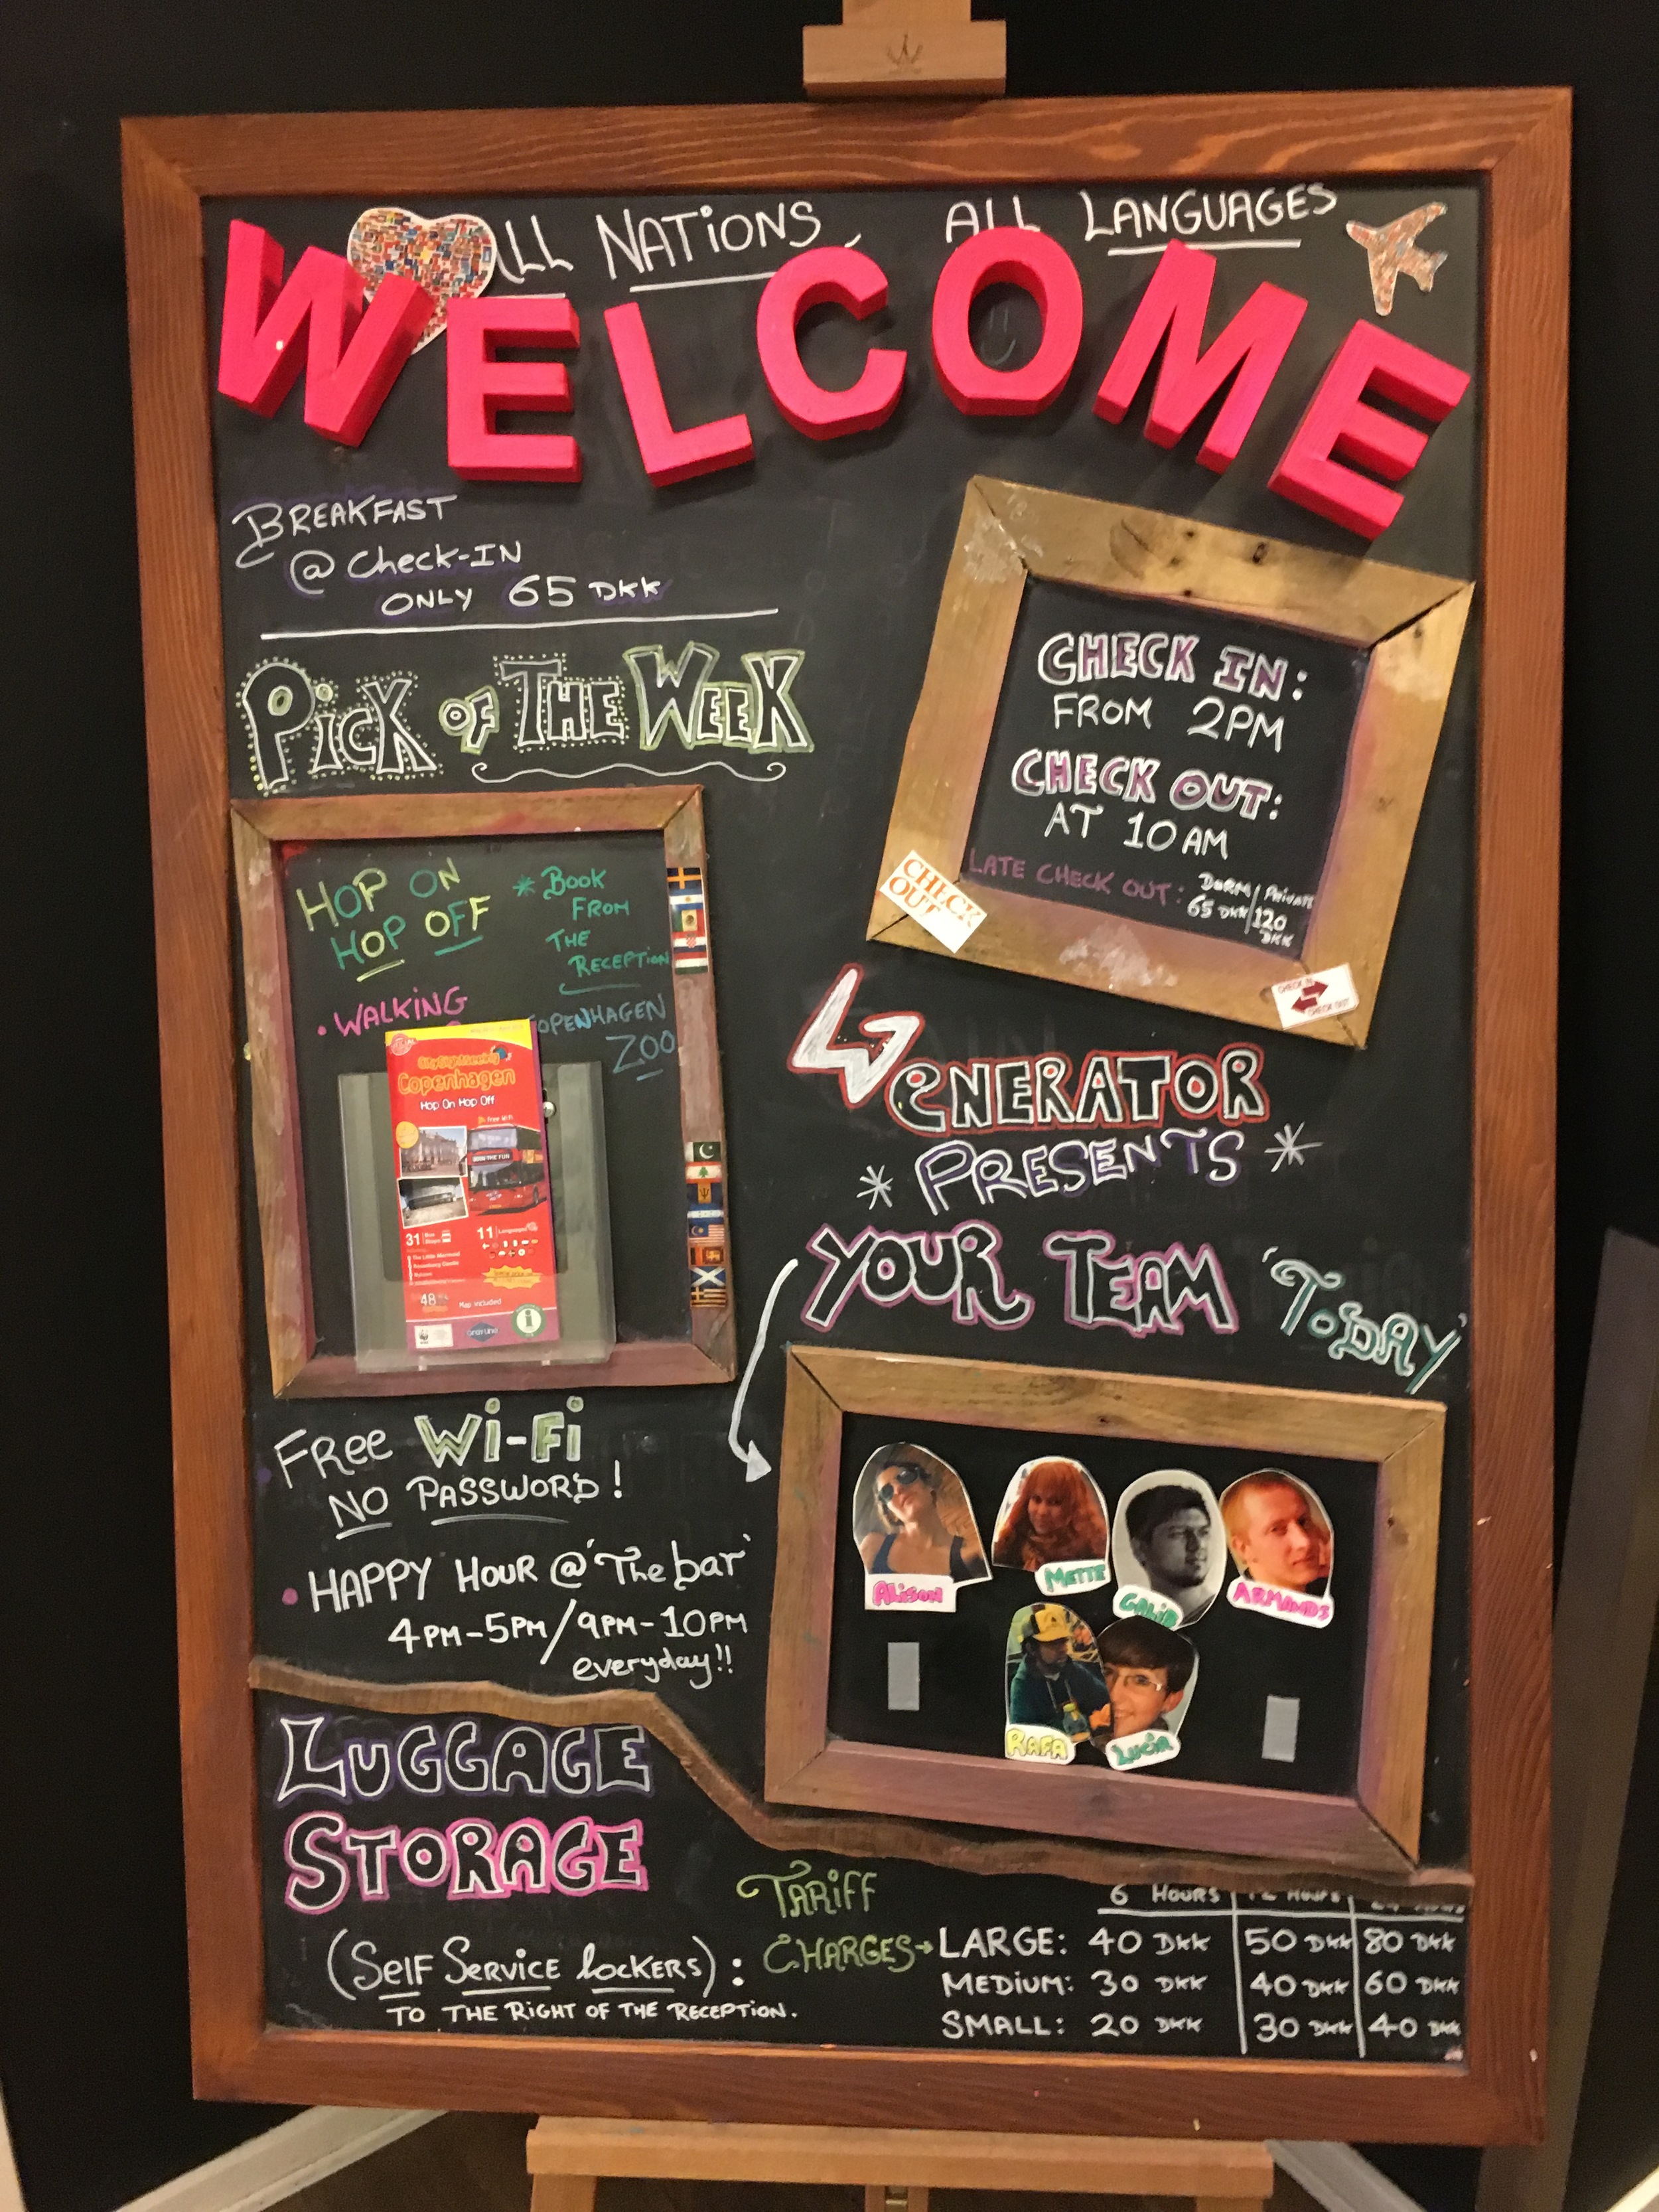 ALL NATIONS, ALL LANGUAGES
WELCOME
BREAKFAST
@ Check-IN
ONLY 65 DKK
PICK OF THE WEEK
HOP ON
HOP OFF
* BOOK
FROM
THE
RECEPTION
• WALKING
COPENHAGEN
ZOO
City Sightseeing
Copenhagen
Hop On Hop Off
Free Wi-Fi
31 Bus Stops
11 Languages
The Little Mermaid
Rosenborg Castle
48
Map included
i
CHECK IN:
FROM 2PM
CHECK OUT:
AT 10 AM
LATE CHECK OUT: DORM / Private
65 DKK / 120 DKK
CHECK OUT
CHECK IN
CHECK OUT
GENERATOR
* PRESENTS *
YOUR TEAM 'TODAY'
ALISON
METTE
GALIB
ARMANDS
RAFA
LUCIA
FREE Wi-Fi
NO PASSWORD!
• HAPPY HOUR @ 'The bar'
4PM-5PM/9PM-10PM
everyday!!
LUGGAGE
STORAGE
(SELF SERVICE LOCKERS):
TO THE RIGHT OF THE RECEPTION.
TARIFF
CHARGES →
6 HOURS | 12 HOURS |
LARGE: 40 DKK | 50 DKK | 80 DKK
MEDIUM: 30 DKK | 40 DKK | 60 DKK
SMALL: 20 DKK | 30 DKK | 40 DKK